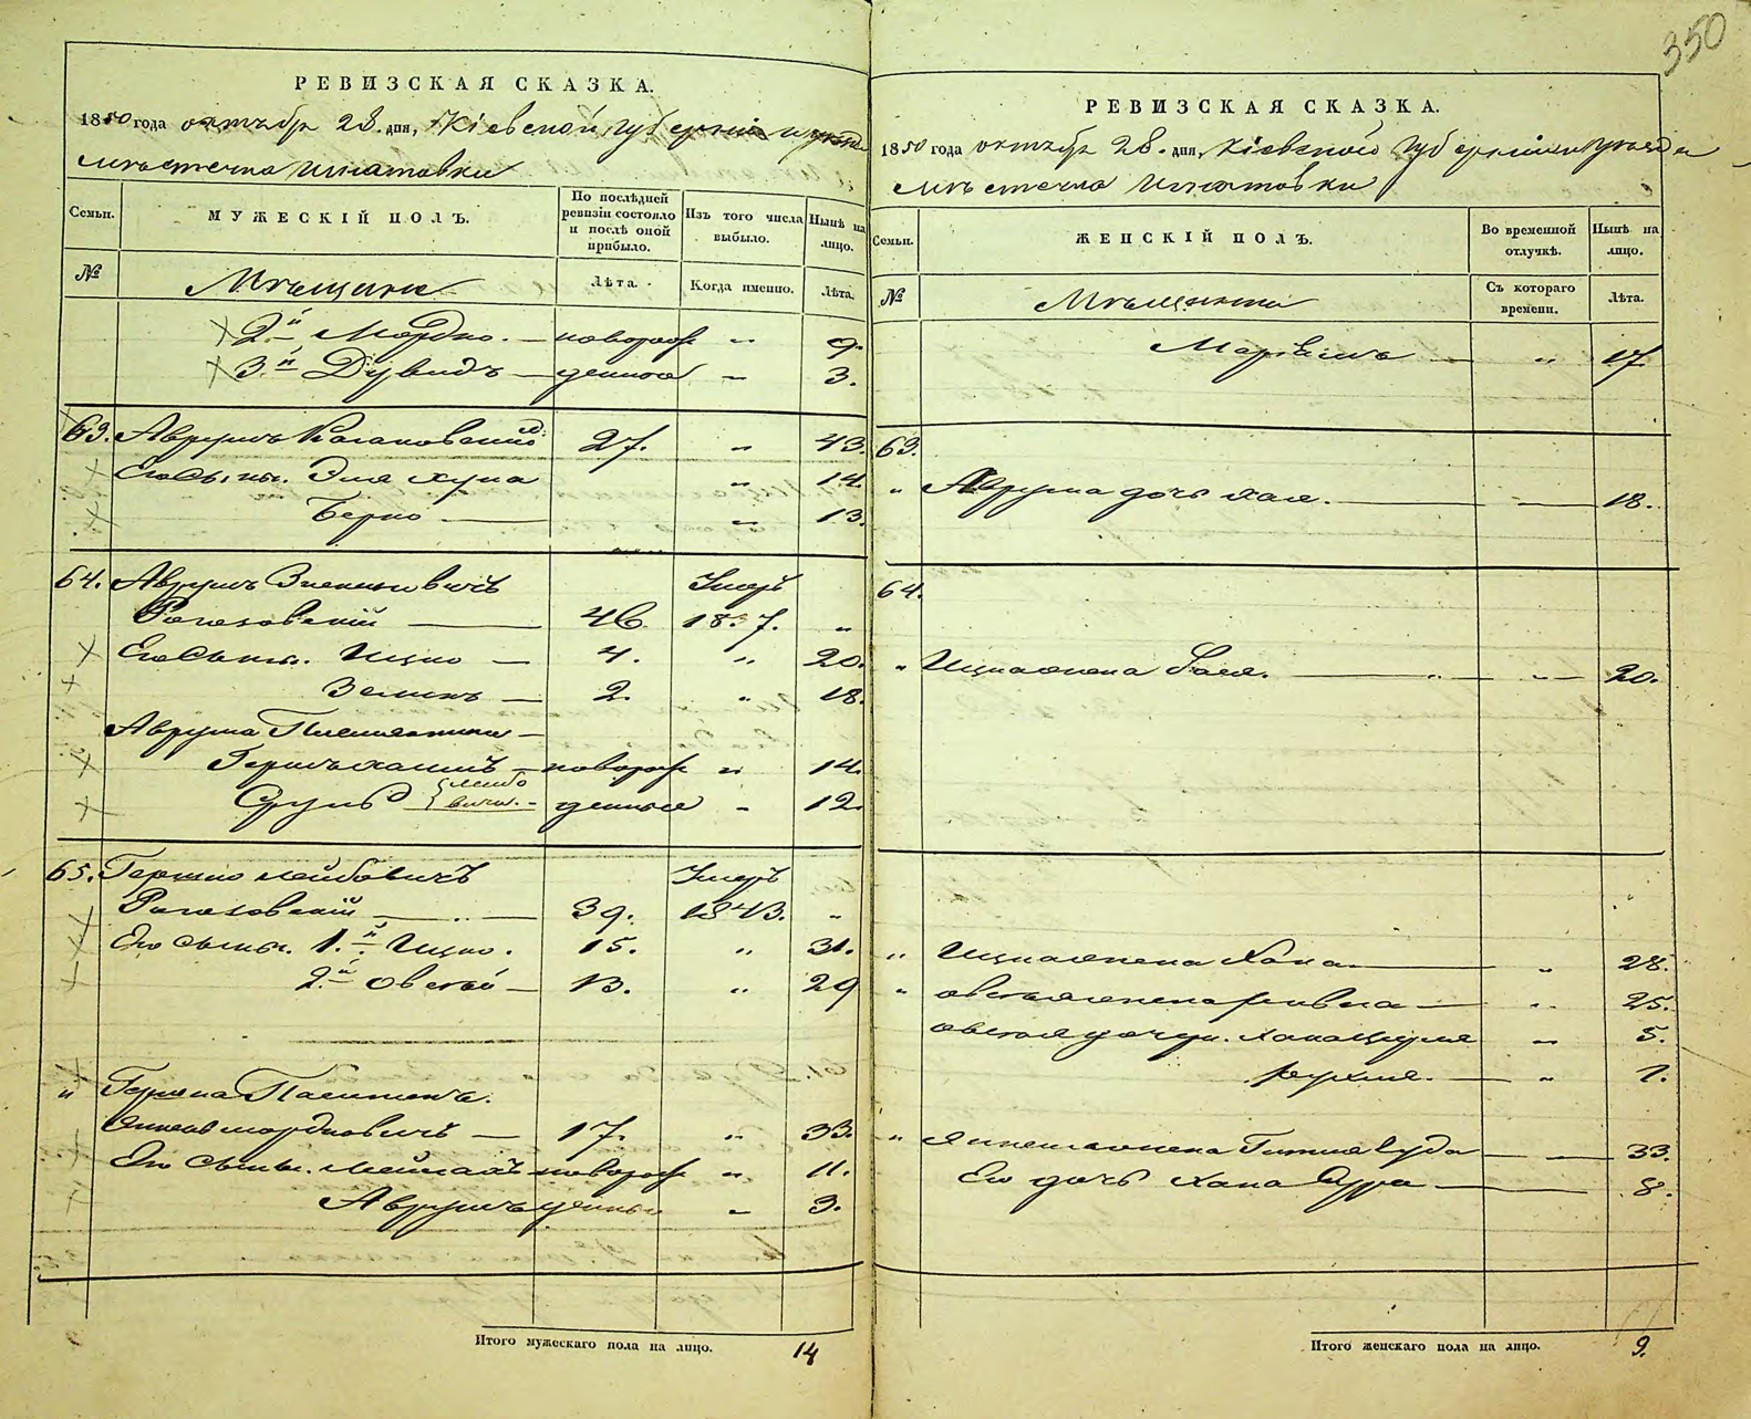 350
РЕВИЗСКАЯ СКАЗКА.
1850 года октября 28. дня, Кіевской губерніи и уезда
мѣстечка Игнатовки
Семьи.
МУЖЕСКІЙ ПОЛЪ.
По послѣдней ревизіи состояло и послѣ оной прибыло.
Изъ того числа выбыло.
Нынѣ на лицо.
№
Мѣщане
Лѣта.
Когда именно.
Лѣта.
2.й Мордко. — новорож „ 9.
3.й Дувидъ — денные „ 3.
63. Аврумъ Кагановский 27. „ 43.
Его Сыны. Эля Хуна „ 14.
Берко — „ 13.
64. Аврумъ Умеръ
Рогозовскій — 46. 18 7. „
Его Сыны. Ицко — 4. „ 20.
Зельманъ — 2. „ 18.
Аврума Племянники —
— новорож „ 14.
Сруль Лейбовичи. — денные „ 12.
65. Гершко Лейбовичъ Умеръ
Рогозовскій — 39. 1843. „
Его Сыны. 1.й Ицко. 15. „ 31.
2.й Овсей — 13. „ 29
„ Гершка
Мордковичъ — 17. „ 33.
Его Сыны. новорож „ 11.
Аврумъ денные „ 3.
Итого мужескаго пола на лицо. 14
РЕВИЗСКАЯ СКАЗКА.
1850 года октября 28. дня, Кіевской губерніи и уезда
мѣстечка Игнатовки
Семьи.
ЖЕНСКІЙ ПОЛЪ.
Во временной отлучкѣ.
Нынѣ на лицо.
№
Мѣщанки
Съ котораго времени.
Лѣта.
Маріямъ — „ 17
63.
„ Аврума дочь Хая. — 18.
64.
„ Ицка жена — „ 20.
„ Ицка жена Хана — „ 28.
„ Овсея жена Ривка — „ 25.
Овсея дочери. Хана Цирля „ 5.
Рухля. — „ 1.
„ жена — 33.
Его дочь Хана Сура — 8.
Итого женскаго пола на лицо. 9.